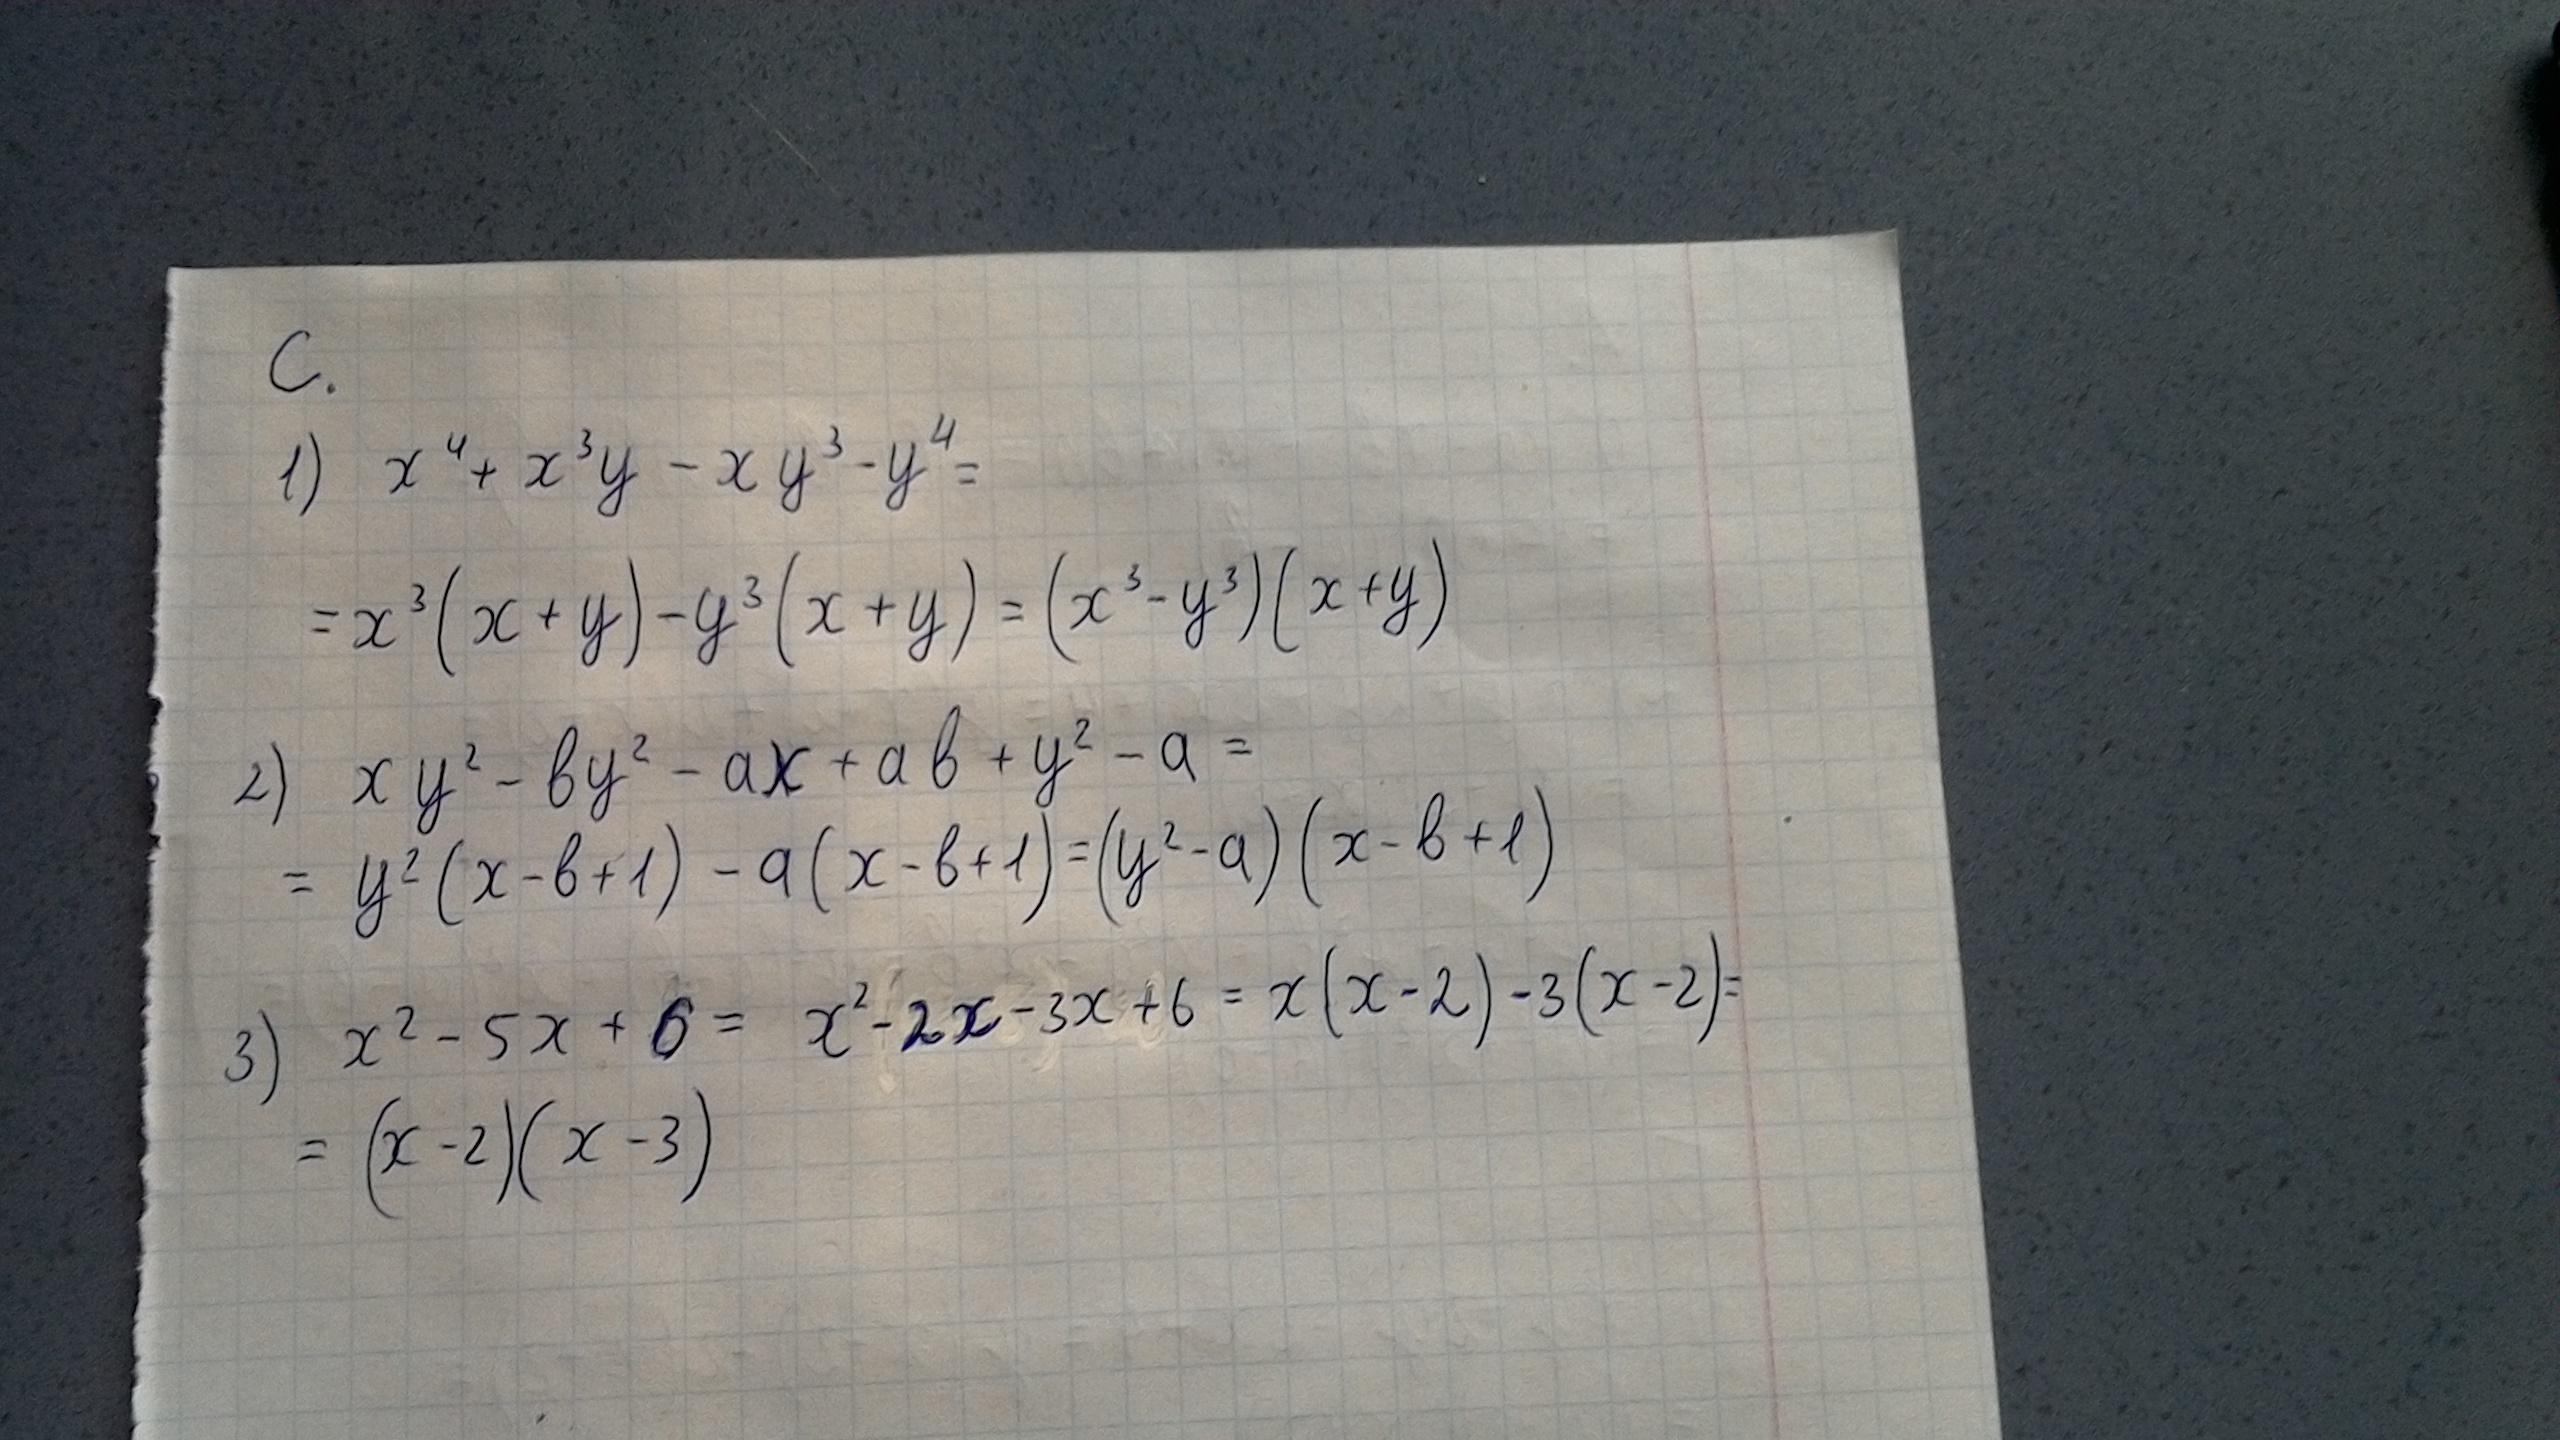 С.
1) x⁴ + x³y - xy³ - y⁴ =
= x³(x + y) - y³(x + y) = (x³ - y³)(x + y)
2) xy² - вy² - ax + aв + y² - a =
= y²(x - в + 1) - a(x - в + 1) = (y² - a)(x - в + 1)
3) x² - 5x + 6 = x² - 2x - 3x + 6 = x(x - 2) - 3(x - 2) =
= (x - 2)(x - 3)